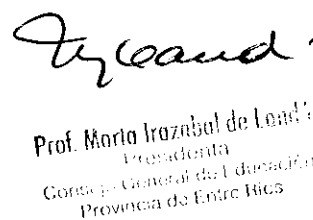 Prof. Marta Irazabal de Land
Presidenta
Consejo General de Educación
Provincia de Entre Ríos